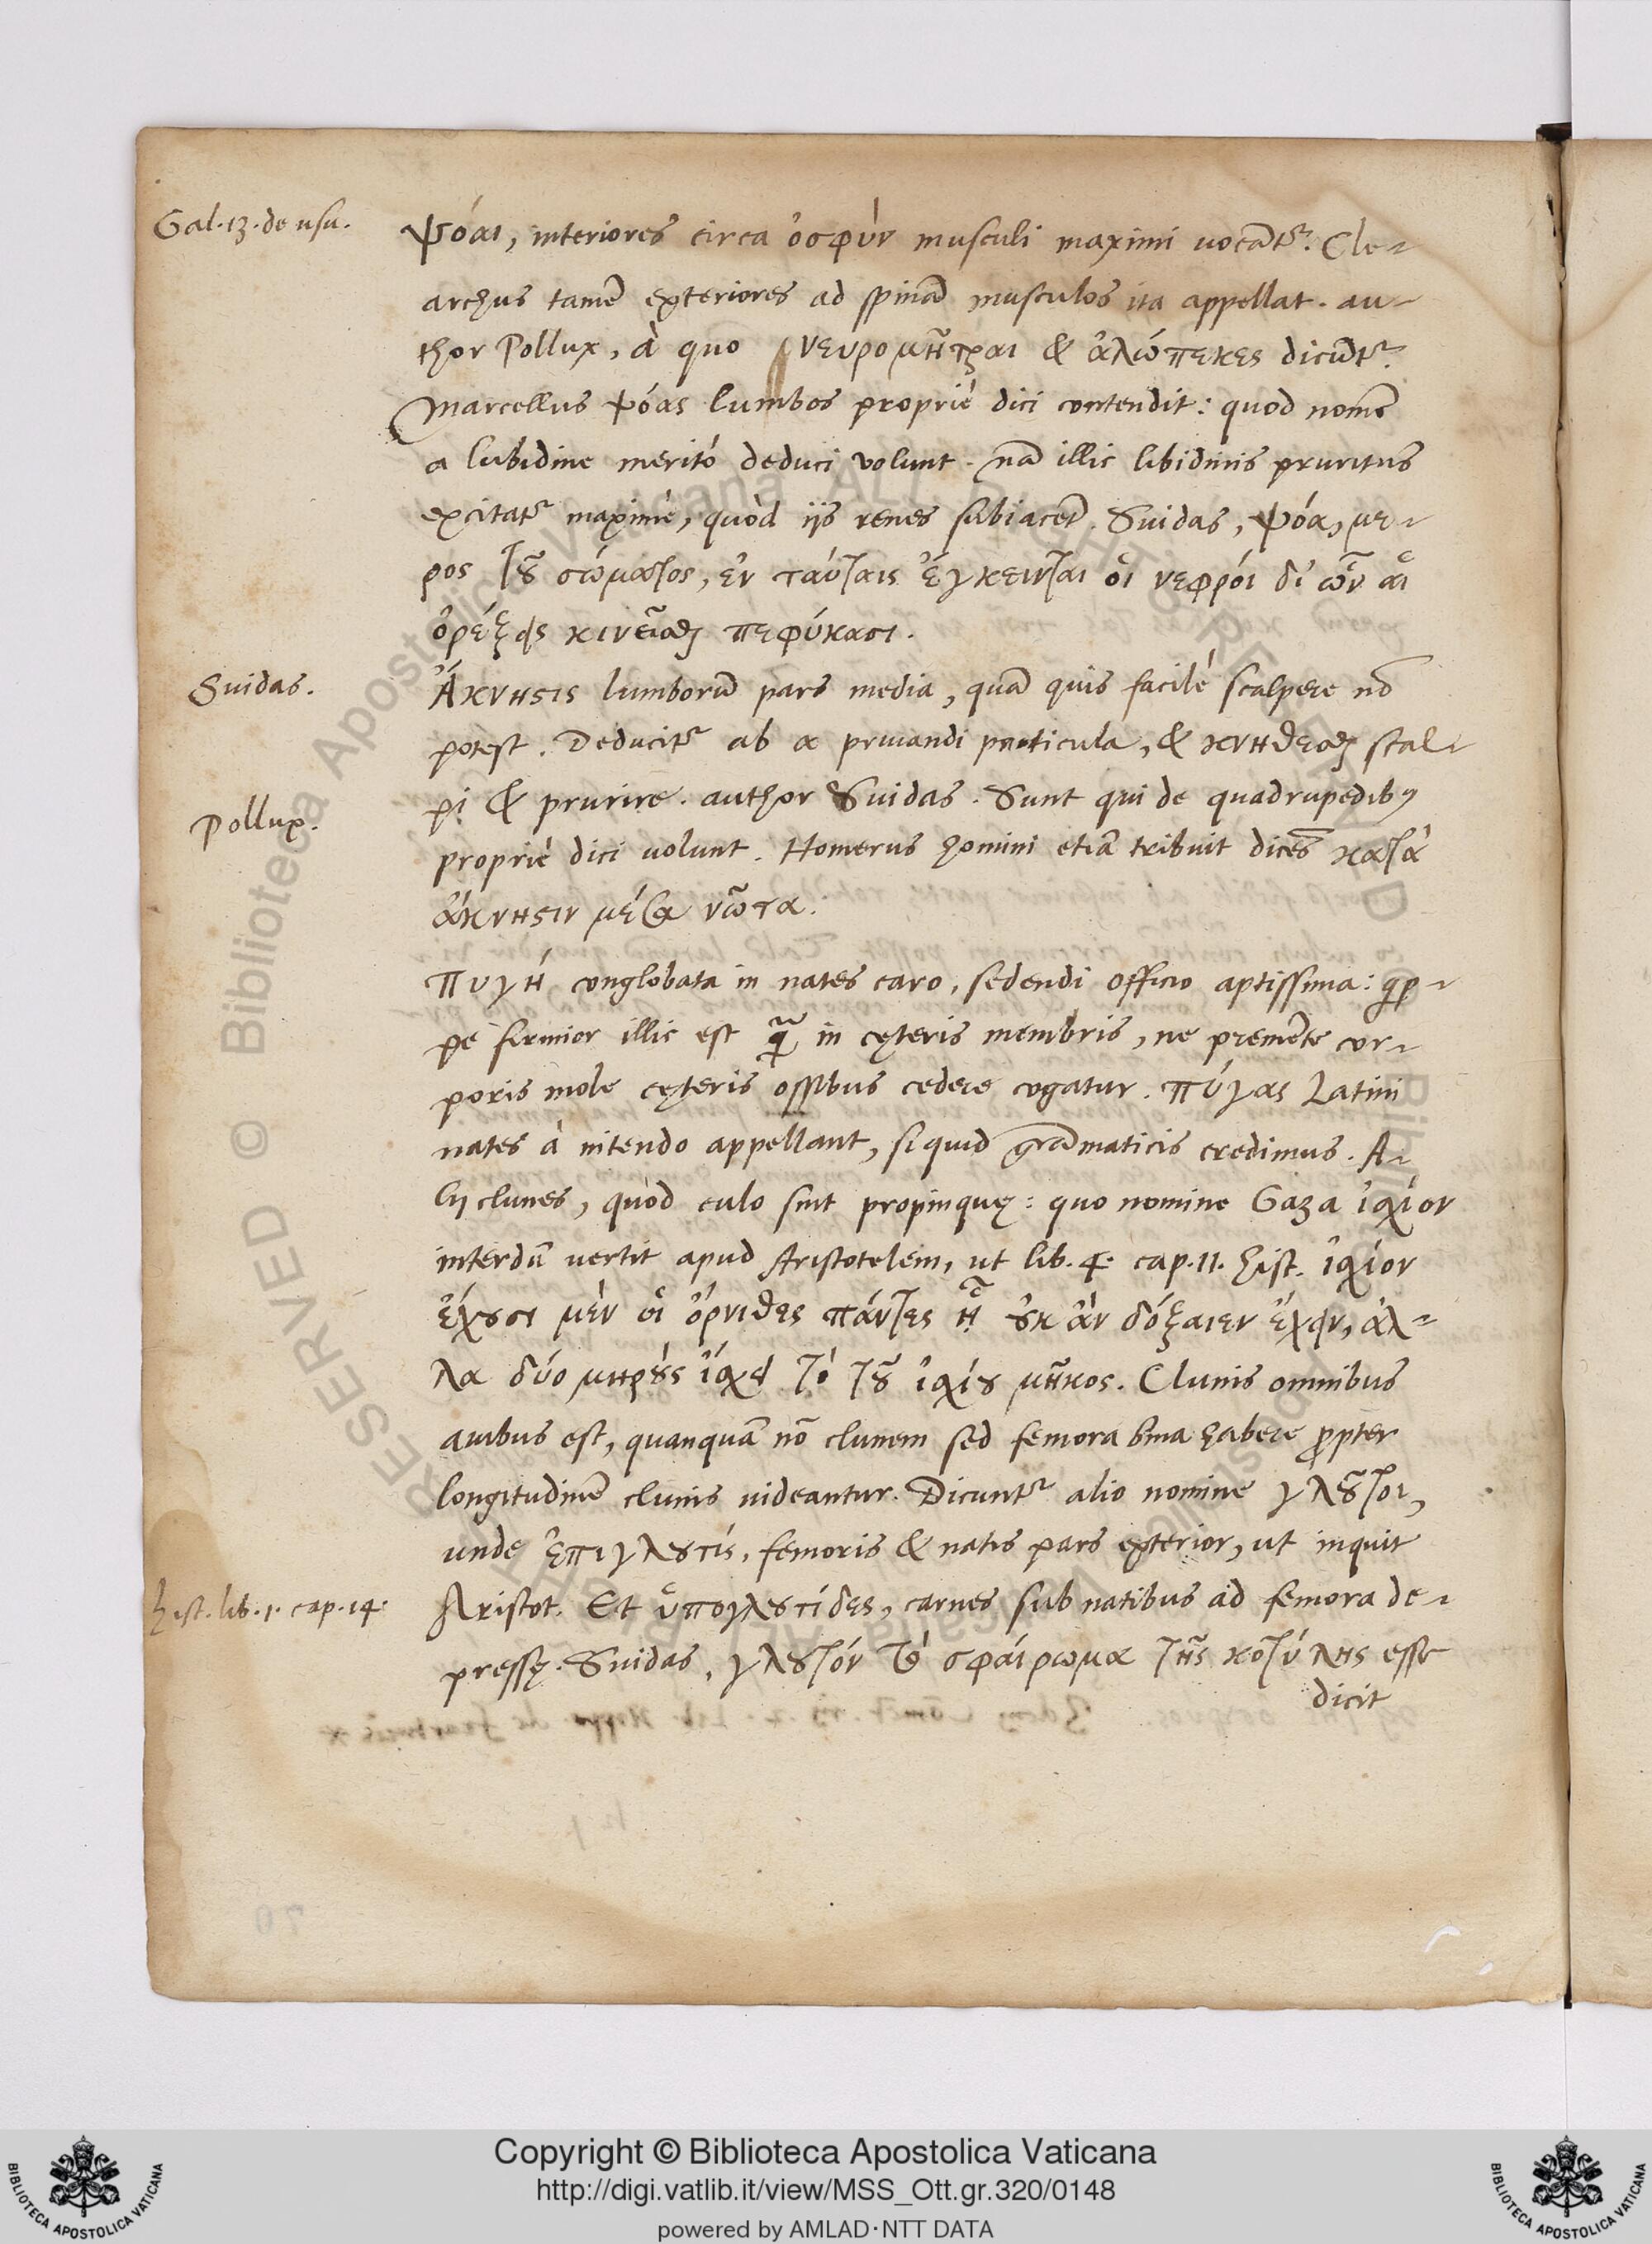 Gal. 13. de usu.
ψόαι, interiores circa ὀσφὺν musculi maximi uocãtr̃. Cle-
archus tamẽ exteriores ad spinã musculos ita appellat. au-
thor Pollux, à quo νευρομῆτραι & ἀλώπεκες dicũtr̃.
Marcellus ψόας lumbos propriè dici contendit: quod nomẽ
a lubidine meritò deduci volunt. nã illic libidinis pruritus
excitatr̃ maximè, quòd ijs renes subiacẽt. Suidas, ψόα, με-
ρος τȣ͂ σώματος, ἐν ταύταις ἔγκεινται ὁι νεφρόι δι' ὧν ἁι
ὀρέξεις κινεῖσθαι πεφύκασι.
Suidas.
Ἄκνησις lumborũ pars media, quã quis facilè scalpere nõ
potest. Deducitr̃ ab α priuandi particula, & κνηθεσθαι scal-
pi & prurire. author Suidas. Sunt qui de quadrupedibꝰ
Pollux.
propriè dici uolunt. Homerus homini etiã tribuit dicẽs κατὰ
ἄκνησιν μέσα νῶτα.
πυγή conglobata in nates caro, sedendi officio aptissima: quip-
pe firmior illic est quã in cęteris membris, ne premẽte cor-
poris mole cęteris ossibus cedere cogatur. πύγας Latini
nates à nitendo appellant, si quid grãmaticis credimus. A-
lij clunes, quòd culo sint propinquę: quo nomine Gaza ἰσχίον
interdũ vertit apud Aristotelem, ut lib. 4. cap. 11. hist. ἰσχίον
ἔχȣσι μὲν ὁι ὄρνιθες πάντες ᾗ ȣκ ἂν δόξαιεν ἔχειν, ἀλ-
λα δύο μηρȣ̀ς ἴσχει τὸ τȣ͂ ἰσχίȣ μῆκος. Clunis omnibus
auibus est, quanquã nõ clunem sed femora bina habere ꝓpter
longitudinẽ clunis uideantur. Dicuntr̃ alio nomine γλȣ͂τοι,
unde ἐπιγλȣτίς, femoris & natis pars exterior, ut inquit
hist. lib. 1. cap. 14.
Aristot. Et ὑπογλȣτίδες, carnes sub natibus ad femora de-
pressę. Suidas, γλȣτόν τὸ σφάιρωμα τῆς κοτύλης esse
dicit
Copyright © Biblioteca Apostolica Vaticana
http://digi.vatlib.it/view/MSS_Ott.gr.320/0148
powered by AMLAD·NTT DATA